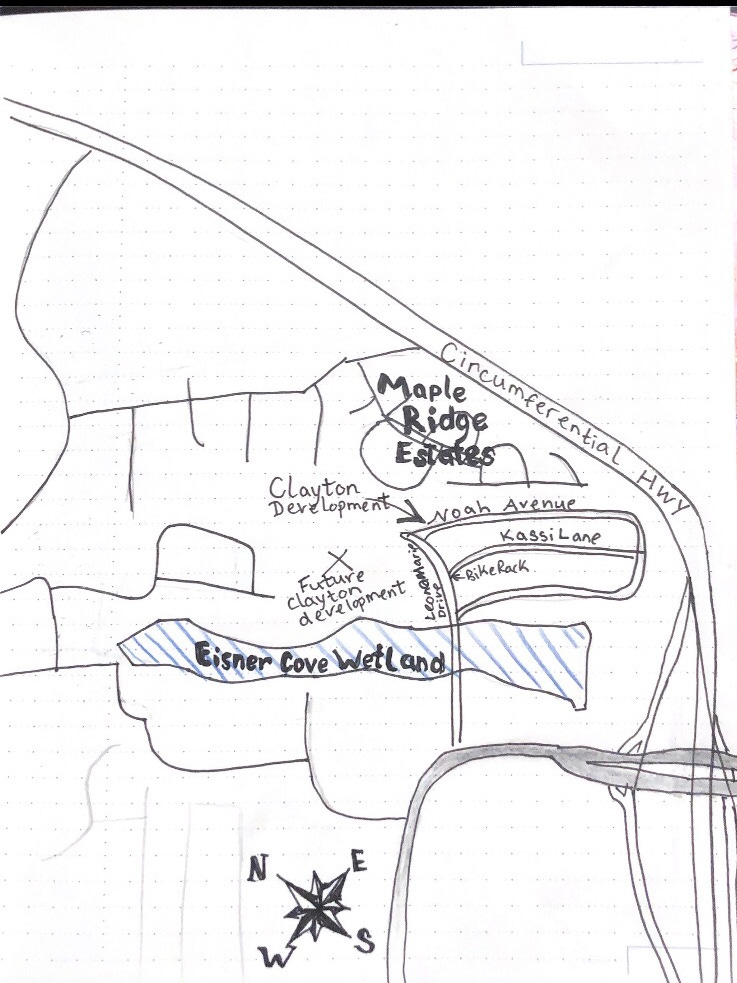 Circumferential Hwy
Maple
Ridge
Estates
Clayton
Development
Noah Avenue
Kassi Lane
LeonaMarie
Drive
BikeRack
Future
clayton
development
Eisner Cove Wetland
N
E
W
S